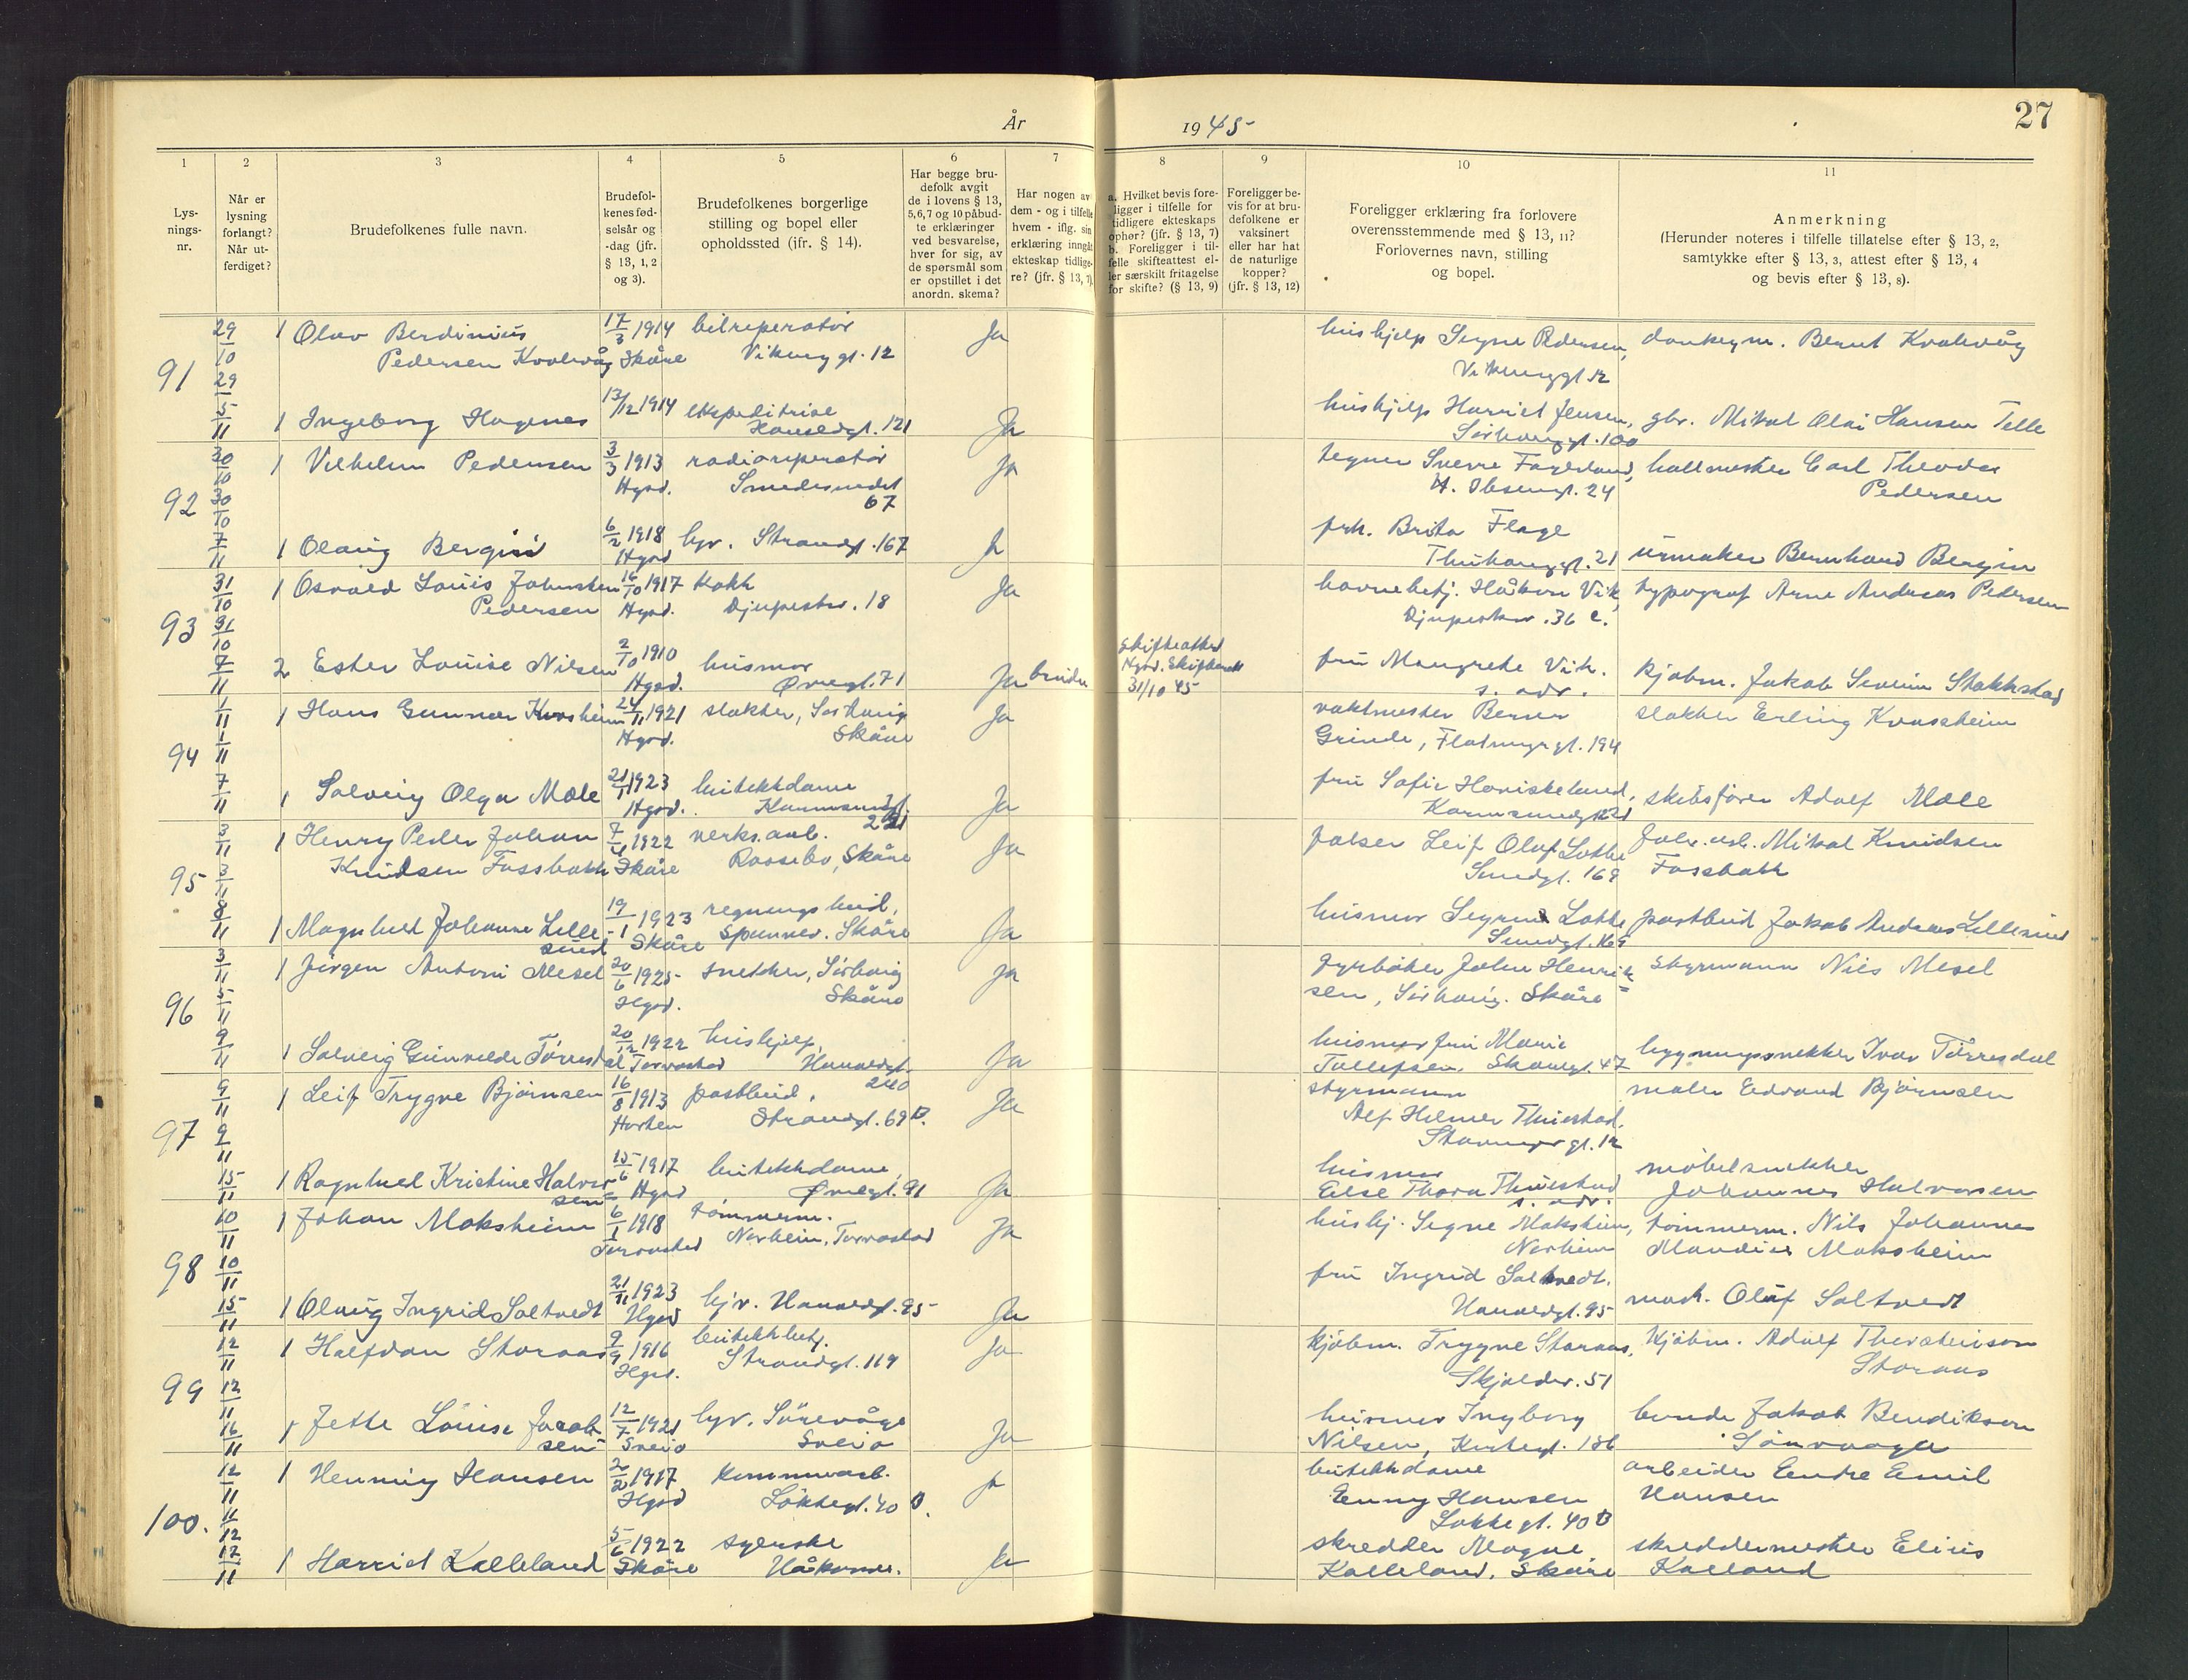 27
År 1945
1 2 3 4 5 6 7 8 9 10 11
Lys-
nings-
nr.
Når er
lysning
forlangt?
Når ut-
ferdiget?
Brudefolkenes fulle navn.
Brudefol-
kenes fød-
selsår og
-dag (jfr.
§ 13, 1, 2
og 3).
Brudefolkenes borgerlige
stilling og bopel eller
opholdssted (jfr. § 14).
Har begge bru-
defolk avgit
de i lovens § 13,
5, 6, 7 og 10 påbud-
te erklæringer
ved besvarelse,
hver for sig, av
de spørsmål som
er opstillet i det
anordn. skema?
Har nogen av
dem - og i tilfelle
hvem - iflg. sin
erklæring inngåt
ekteskap tidlige-
re? (jfr. § 13, 7)
a. Hvilket bevis fore-
ligger i tilfelle for
tidligere ekteskaps
ophør? (jfr. § 13, 7)
b. Foreligger i til-
felle skifteattest el-
ler særskilt fritagelse
for skifte? (§ 13, 9)
Foreligger be-
vis for at bru-
defolkene er
vaksinert
eller har hat
de naturlige
kopper?
(jfr. § 13, 12)
Foreligger erklæring fra forlovere
overensstemmende med § 13, 11?
Forlovernes navn, stilling
og bopel.
Anmerkning
(Herunder noteres i tilfelle tillatelse efter § 13, 2,
samtykke efter § 13, 3, attest efter § 13, 4
og bevis efter § 13, 8).
91
29/10 1 Olav Berdinius 17/3 1914 bilreperatør Ja hushjelp Signe Pedersen, Bernt Kvalevåg
Pedersen Kvalevåg Skåre Vikinggt. 12 Vikinggt 12
29
5/11 1 Ingeborg Hagenes 13/12 1914 ekspeditrise Ja hushjelp Harriet Jensen, gbr. Mikal Olai Hansen Telle
121 Sørhauggt. 100
92
30/10 1 Vilhelm Pedersen 3/3 1913 radioreperatør Ja tegner Sverre Fagerland, Carl Theodor
Hgsd. Smedesundet H. Ibsengt. 24 Pedersen
30/10 67
7/11 1 Olaug Bergin 6/2 1918 hjv. Strandgt. 167 Ja frk. Brita Flage
Hgsd 21 urmaker Bernhard Bergin
93
31/10 1 Osvald Louis Johnsken 16/10 1917 kokk Ja havnebetj. Håkon Vik, typograf Arne Andreas Pedersen
Pedersen Hgsd. Djupeskv. 18 Djupeskv. 36 c.
31/10
7/11 2 Ester Louise Nilsen 2/10 1910 husmor Ja bruden Skifteattest fru Margrete Vik. kjøbm. Jakob Severin Stakkstad
Hgsd. Øvregt. 71 Hgsd. Skifterett s. adr.
31/10 45
94
1/11 1 Hans Gunnar 24/11 1921 slakter, Sørhaug Ja vaktmester Berner slakter Erling Kvassheim
Hgsd. Skåre Grinde, Flotmyrgt. 194
1/11
7/11 1 Solveig Olga Mæle 1923 butikkdame Ja fru Sofie skibsfører Adolf Mæle
Hgsd. Karmsundgt.
95
3/11 1 Henry Peder Johan 1922 verks.arb. Ja Leif Olaf Løkke Mikal Knudsen
Knudsen Fossbakk Skåre Raasebø, Skåre Smedgt. 169 Fossbakk
3/11
8/11 1 Magnhild Johanne Lille- 19/1 1923 regningsbud, Ja husmor Løkke postbud Jakob Andreas Lillesund
sund Skåre Spannav. Skåre
96
3/11 1 Jørgen Antoni Mesel 20/6 1925 snekker, Sørhaug Ja fyrbøter John Henrik- styrmann Nils Mesel
Hgsd. Skåre sen, Sørhaug. Skåre
5/11
9/11 1 Solveig Gunvalda Tørresdal 20/12 1922 hushjelp, Ja husmor fru Marie bygningssnekker Ivar Tørresdal
Torvastad Haraldgt. 240 Tollefsen. Skåregt. 47
97
9/11 1 Leif Trygve Bjørnsen 16/8 1913 postbud, Ja styrmann maler Edvard Bjørnsen
Horten Strandgt. 69 B. Alf Hilmer Thuestad,
9/11 Stavangergt. 12
15/11 1 Ragnhild Kristine Halvor- 15/6 1917 butikkdame, Ja husmor møbelsnekker
sen Hgsd Øvregt. 91 Else Thora Thuestad Johannes Halvorsen
s. adr.
98
10/11 1 Johan Moksheim 6/1 1918 tømmerm. Ja hushj. Signe Moksheim, tømmerm. Nils Johannes
Torvastad Norheim, Torvastad Norheim Moksheim
10/11
15/11 1 Olaug Ingrid Saltvedt 21/11 1923 hjv. Haraldgt. 95 Ja fru Ingrid Saltvedt. mask. Oluf Saltvedt
Hgsd Haraldgt. 95
99
12/11 1 Halfdan Storaas 9/9 1916 butikkbetj. Ja kjøbm. Trygve Storaas, kjøbm. Adolf
Hgsd. Strandgt. 119 Skjoldav. 51 Storaas
12/11
16/11 1 Jette Louise Jacob- 12/7 1921 hjv. Sørevåge Ja husmor Ingborg bonde Jakob Bendiksen
sen Sveio Sveio Nilsen, Kirkegt. 186
100.
12/11 1 Henning Hansen 2/2 1917 Ja butikkdame arbeider Endre Emil
Hgsd Løkkegt. 40 B. Enny Hansen Hansen
Løkkegt. 40 B
12
17/11 1 Harriet Kalleland 5/6 1922 syerske Ja skredder Magne skreddermester Elius
Skåre Håkonsv. Kalleland. Skåre Kalland